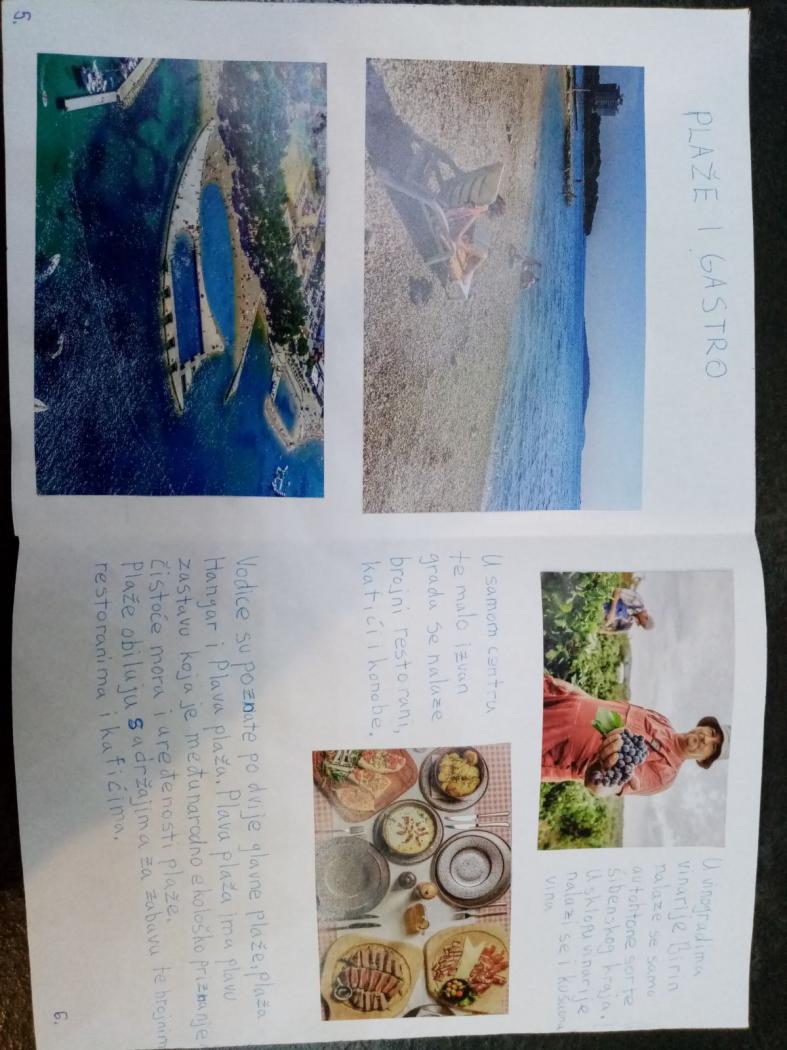 PLAŽE I GASTRO
U vinogradima
vinarije Birin
nalaze se samo
autohtone sorte
šibenskog kraja.
U sklopu vinarije
nalazi se i kušaona
vina
U samom centru
te malo izvan
grada se nalaze
brojni restorani,
kafići i konobe.
Vodice su poznate po dvije glavne plaže, plaža
Hangar i Plava plaža. Plava plaža ima plavu
zastavu koja je međunarodno ekološko priznanje
čistoće mora i uređenosti plaže.
Plaže obiluju sadržajima za zabavu te brojnim
restoranima i kafićima.
5.
6.